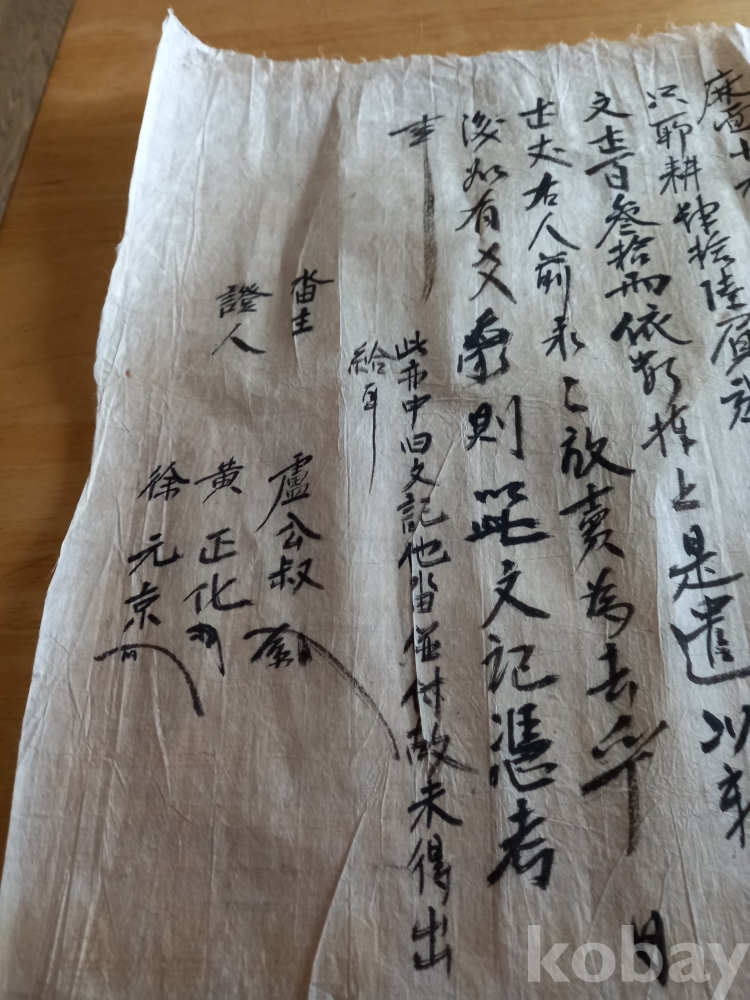 只耶耕肆拾陸
文壹百叁拾兩依數捧上是遣以
右人前永々放賣為去乎
後如有爻象則以此文記憑考
事
此亦中旧文記他畓並付故未得出
給耳
畓主 盧公叔
證人 黃正化
徐元京
kobay